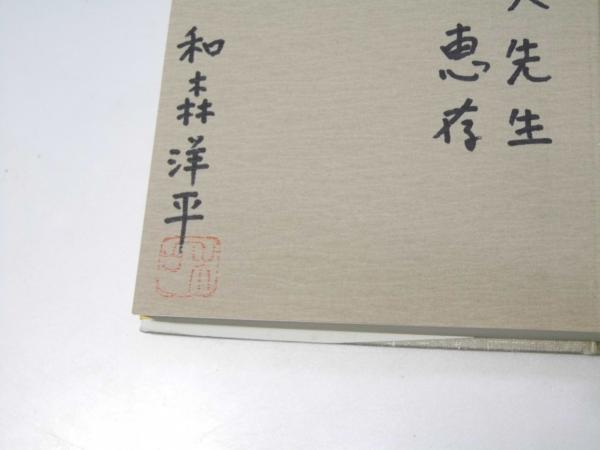 先生
恵存
和森洋平